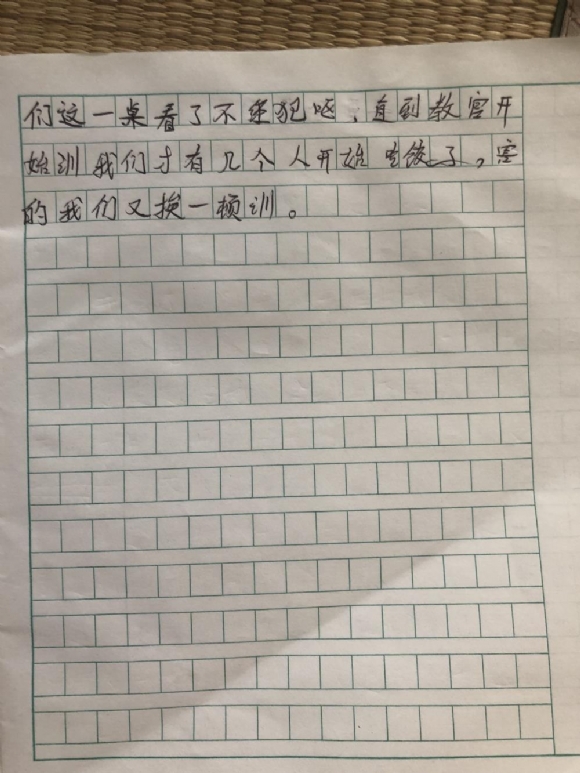 们这一桌看了不经犯呕，直到教官开
始训我们才有几个人开始吃饺子，害
的我们又挨一顿训。